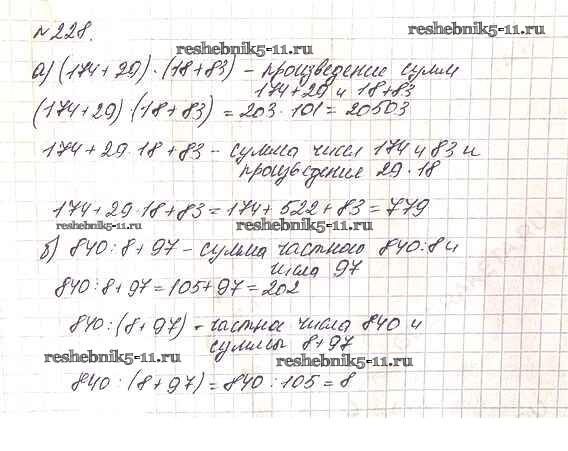 №228.
reshebnik5-11.ru
reshebnik5-11.ru
а) (174+29)·(18+83) - произведение сумм
174+29 и 18+83
(174+29)·(18+83) = 203·101 = 20503
174+29·18+83 - сумма чисел 174 и 83 и
произведения 29·18
174+29·18+83 = 174+522+83 = 779
reshebnik5-11.ru
reshebnik5-11.ru
б) 840:8+97 - сумма частного 840:8 и
числа 97
840:8+97 = 105+97 = 202
840:(8+97) - частное числа 840 и
суммы 8+97
reshebnik5-11.ru
reshebnik5-11.ru
840:(8+97) = 840:105 = 8